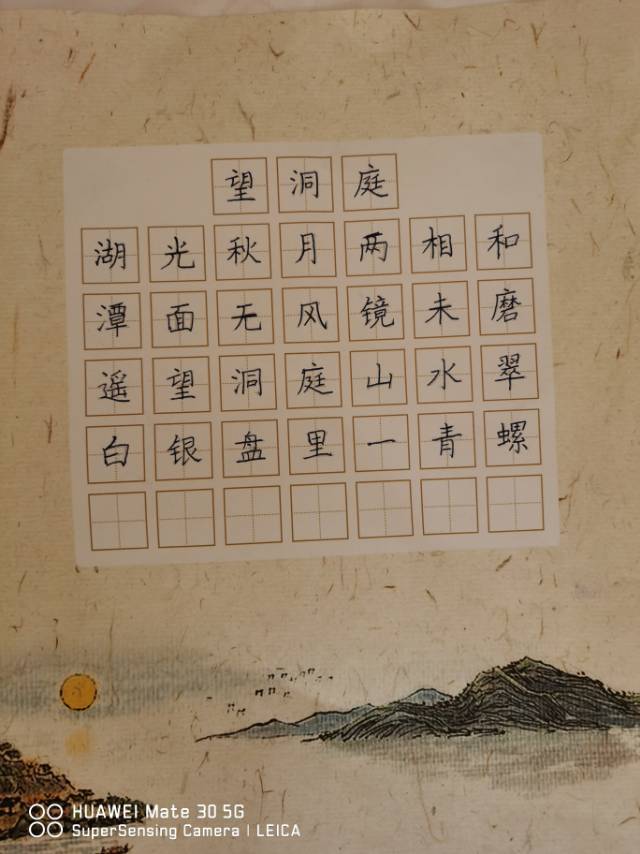 望洞庭
湖光秋月两相和
潭面无风镜未磨
遥望洞庭山水翠
白银盘里一青螺
HUAWEI Mate 30 5G
SuperSensing Camera | LEICA